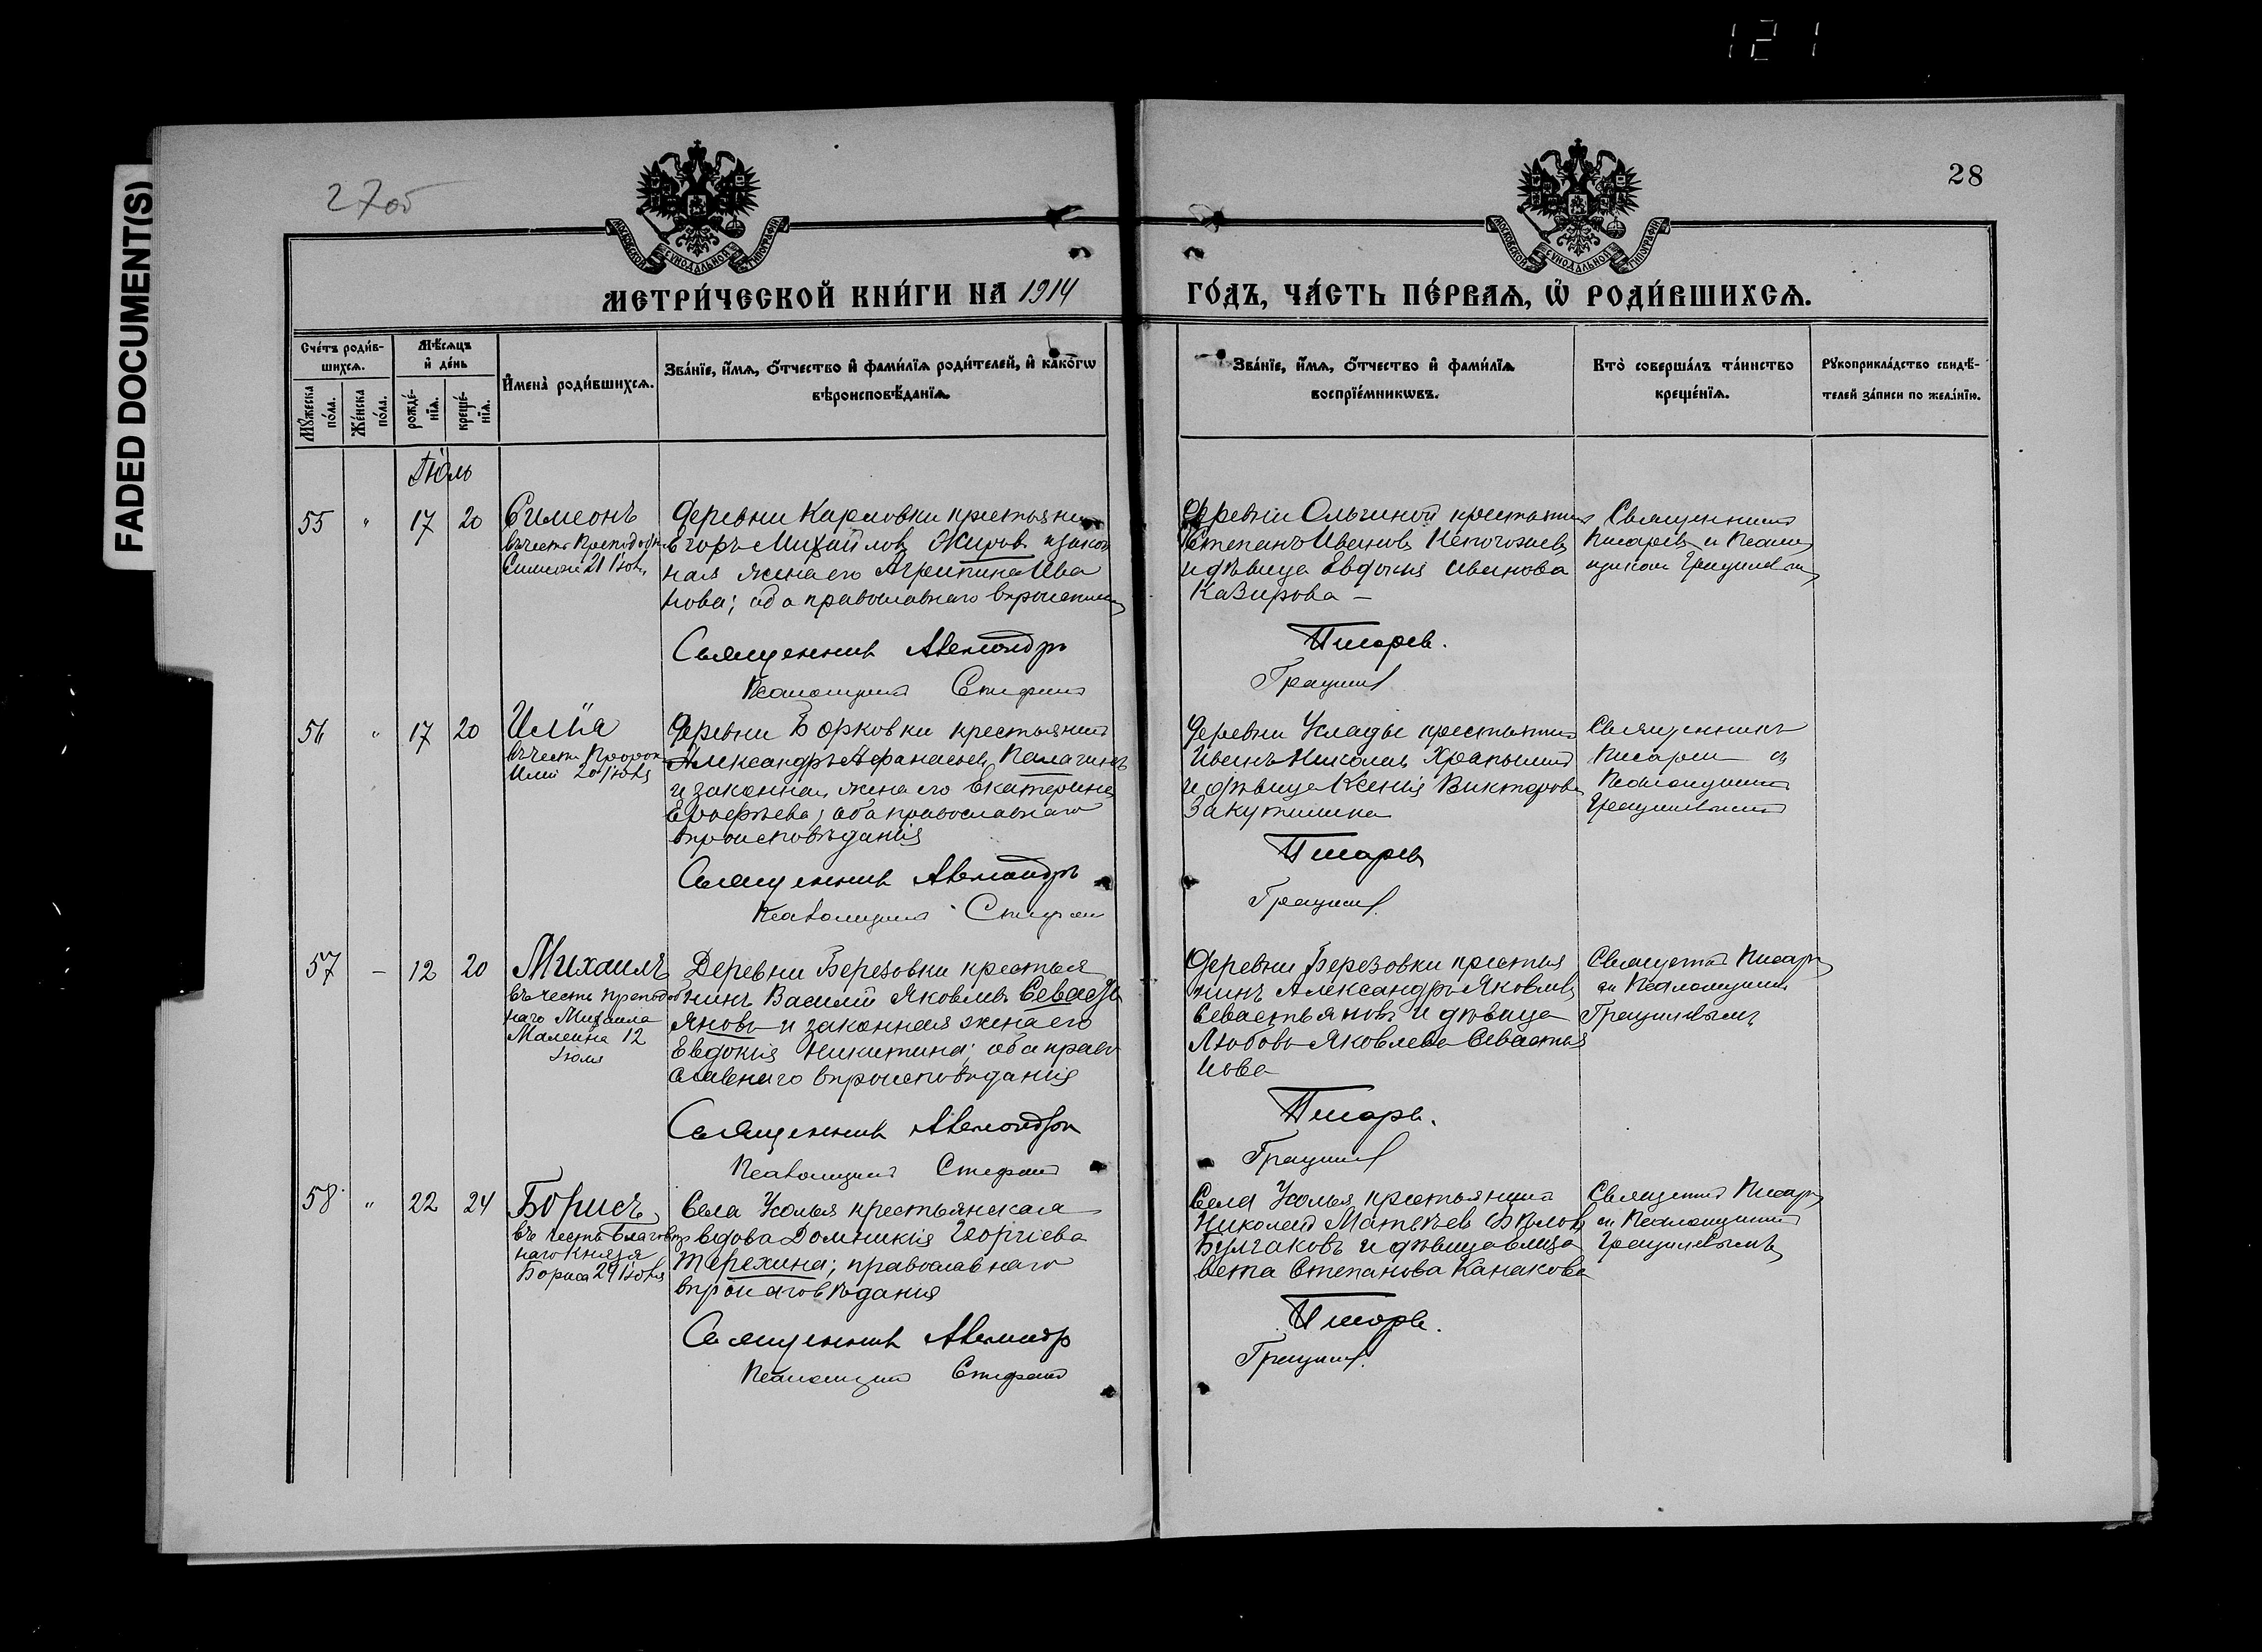 121
FADED DOCUMENT(S)
27об
28
МОСКОВСКОЙ СѴНОДАЛЬНОЙ ТИПОГРАФІИ
МОСКОВСКОЙ СѴНОДАЛЬНОЙ ТИПОГРАФІИ
МЕТРИ́ЧЕСКОЙ КНИ́ГИ НА 1914 ГО́ДЪ, ЧА́СТЬ ПЕ́РВАѦ, Ѡ҆ РОДИ́ВШИХСѦ.
Сче́тъ роди́в-
шихсѧ.
Мꙋ́жеска по́ла.
Же́нска по́ла.
Мѣ́сѧцъ
и҆ де́нь
рожде́-
нїѧ.
креще́-
нїѧ.
И҆мена̀ роди́вшихсѧ.
Зва́нїе, и҆́мѧ, ѻ҆́тчество и҆ фами́лїѧ роди́телей, и҆ како́гѡ
вѣроисповѣ́данїѧ.
Зва́нїе, и҆́мѧ, ѻ҆́тчество и҆ фами́лїѧ
воспрїе́мникѡвъ.
Кто̀ соверша́лъ та́инство
креще́нїѧ.
Рꙋкоприкла́дство свидѣ́-
телей за́писи по жела́нїю.
Іюль
55 " 17 20 Симеонъ
въ честь Преподобн.
Симеона 21 Іюля
Деревни Карловки крестьянинъ
Егоръ Михайловъ Жировъ и закон
ная жена его Агрипина Ива
нова; оба православнаго вѣроисповѣд
Священникъ Александръ
Псаломщикъ Стефанъ
Деревни Ольгиной крестьянинъ
Степанъ Ивановъ Непогожевъ
и дѣвица Евдокия Иванова
Казирова —
Писарев.
Грацилев
Священникъ
Писаревъ и Псалом
щикомъ Грацилевым
56 " 17 20 Илїа
въ честь Пророка
Илии 20 Іюля
Деревни Борковки крестьянинъ
Александръ Афанасьевъ Палагинъ
и законная жена его Екатерина
Ерофѣева; оба православнаго
вѣроисповѣданія
Священникъ Александръ
Псаломщикъ Стефан
Деревни Услады крестьянинъ
Иванъ Николаев
и дѣвица Ксенія Викторова
Закутилина
Писаревъ
Грацилев.
Священникъ
Писарев и
Псаломщикъ
57 — 12 20 Михаилъ
въ честь преподоб
наго Михаила
Малеина 12
Іюля
Деревни Березовки крестья
нинъ Василий Яковлевъ Севасть
яновъ и законная жена его
Евдокія Никитина; оба право
славнаго вѣроисповѣданія
Священникъ Александръ
Псаломщикъ Стефанъ
Деревни Березовки крестья
нинъ Александръ Яковлевъ
Севастьяновъ и дѣвица
Любовь Яковлева Севастья
нова
Писаревъ.
Грацилев
Священникъ Писаревъ
и Псаломщикъ
Грацилевымъ
58 " 22 24 Борисъ
въ честь Благовѣр
наго Князя
Бориса 24 Іюля
Села Усолья крестьянская
вдова Домникія Георгіева
Терехина; православнаго
вѣроисповѣданія
Священникъ Александр
Псаломщикъ Стефанъ
Села Усолья крестьянинъ
Николай Матвѣев
Булгаковъ и дѣвица Елиза
вета Степанова Канакова
Писаревъ.
Грацилев.
Священникъ Писаревъ
и Псаломщикъ
Грацилевымъ